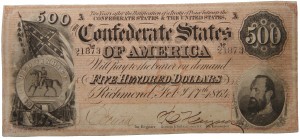 Two Years after the Ratification of a Treaty of Peace between the
CONFEDERATE STATES & THE UNITED STATES,
500 A A 500
Confederate States
OF AMERICA
Will pay to the bearer on demand
FIVE HUNDRED DOLLARS
Richmond, Feb 17th 1864